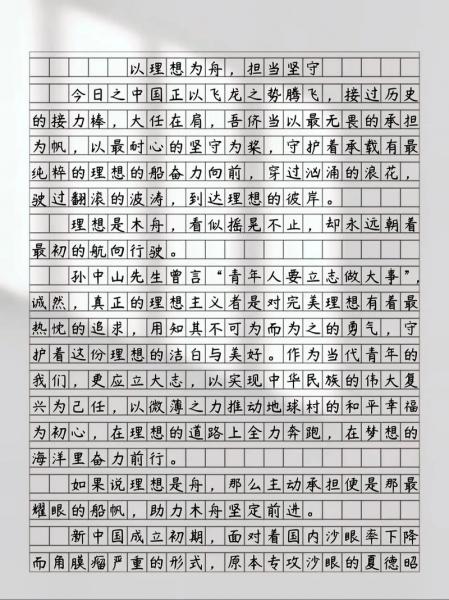 以理想为舟，担当坚守
今日之中国正以飞龙之势腾飞，接过历史
的接力棒，大任在肩，吾侪当以最无畏的承担
为帆，以最耐心的坚守为桨，守护着承载有最
纯粹的理想的船奋力向前，穿过汹涌的浪花，
驶过翻滚的波涛，到达理想的彼岸。
理想是木舟，看似摇晃不止，却永远朝着
最初的航向行驶。
孙中山先生曾言“青年人要立志做大事”，
诚然，真正的理想主义者是对完美理想有着最
热忱的追求，用知其不可为而为之的勇气，守
护着这份理想的洁白与美好。作为当代青年的
我们，更应立大志，以实现中华民族的伟大复
兴为己任，以微薄之力推动地球村的和平幸福
为初心，在理想的道路上全力奔跑，在梦想的
海洋里奋力前行。
如果说理想是舟，那么主动承担便是那最
耀眼的船帆，助力木舟坚定前进。
新中国成立初期，面对着国内沙眼率下降
而角膜瘤严重的形式，原本专攻沙眼的夏德昭